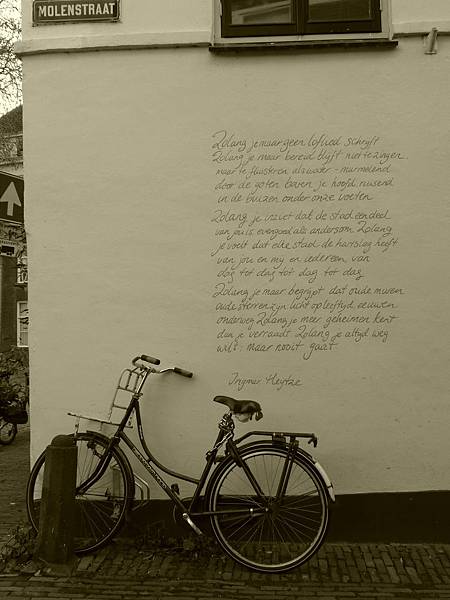 MOLENSTRAAT
Zolang je maar geen loflied schrijft
Zolang je maar bereid blijft niet te zingen,
maar te fluisteren als water - murmelend
door de goten boven je hoofd, ruisend
in de buizen onder onze voeten
Zolang je inziet dat de stad een deel
van jou is, evengoed als andersom. Zolang
je voelt dat elke stad de hartslag heeft
van jou en mij en iedereen, van
dag tot dag tot dag tot dag
Zolang je maar begrijpt dat oude muren
oude sterren zijn, licht op leeftijd, eeuwen
onderweg. Zolang je meer geheimen kent
dan je verraadt. Zolang je altijd weg
wilt: maar nooit gaat.
Ingmar Heytze